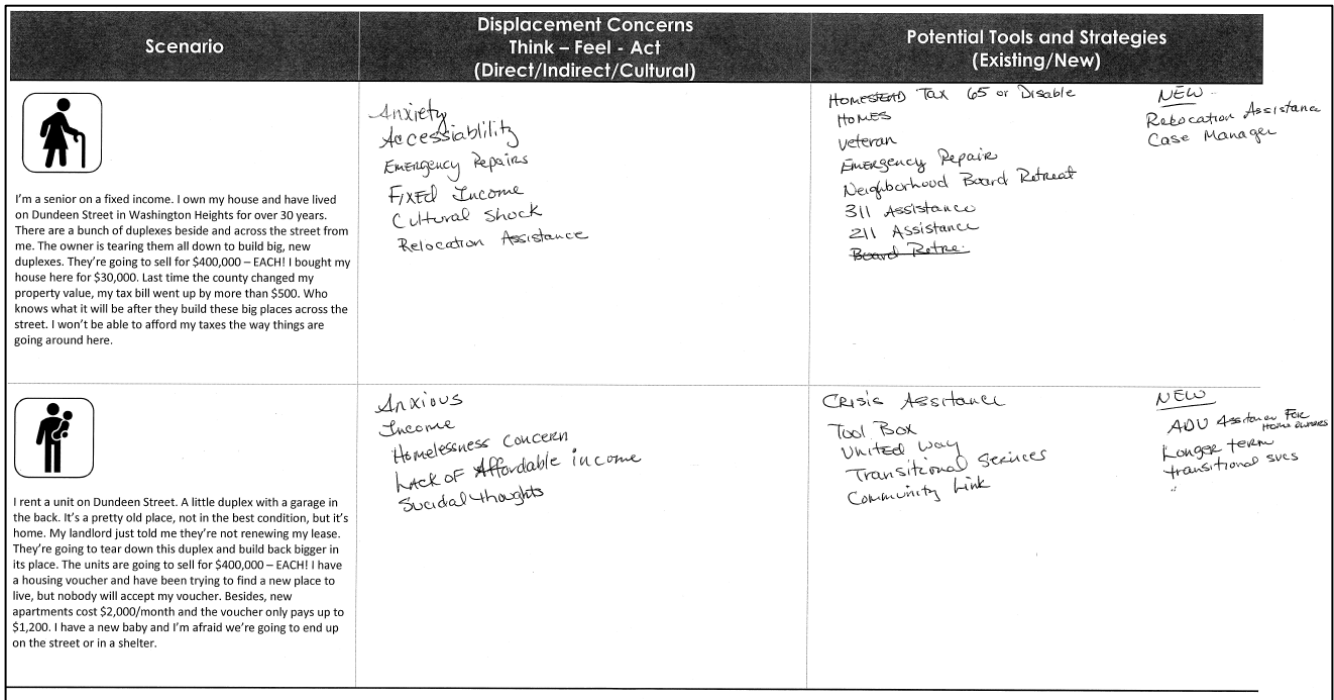 Scenario
Displacement Concerns
Think – Feel - Act
(Direct/Indirect/Cultural)
Potential Tools and Strategies
(Existing/New)
I'm a senior on a fixed income. I own my house and have lived
on Dundeen Street in Washington Heights for over 30 years.
There are a bunch of duplexes beside and across the street from
me. The owner is tearing them all down to build big, new
duplexes. They're going to sell for $400,000 – EACH! I bought my
house here for $30,000. Last time the county changed my
property value, my tax bill went up by more than $500. Who
knows what it will be after they build these big places across the
street. I won't be able to afford my taxes the way things are
going around here.
Anxiety
Accessiablility
Emergency Repairs
Fixed Income
Cultural Shock
Relocation Assistance
Homestead Tax 65 or Disable
Homes
Veteran
Emergency Repair
Neighborhood Board Retreat
311 Assistance
211 Assistance
Board Retre
NEW
Relocation Assistance
Case Manager
I rent a unit on Dundeen Street. A little duplex with a garage in
the back. It's a pretty old place, not in the best condition, but it's
home. My landlord just told me they're not renewing my lease.
They're going to tear down this duplex and build back bigger in
its place. The units are going to sell for $400,000 – EACH! I have
a housing voucher and have been trying to find a new place to
live, but nobody will accept my voucher. Besides, new
apartments cost $2,000/month and the voucher only pays up to
$1,200. I have a new baby and I'm afraid we're going to end up
on the street or in a shelter.
Anxious
Income
Homelessness Concern
Lack of Affordable income
Sucidal thoughts
Crisis Assitance
Tool Box
United Way
Transitional Services
Community Link
NEW
ADU Assitance For
Home owners
Longer term
transitional svcs